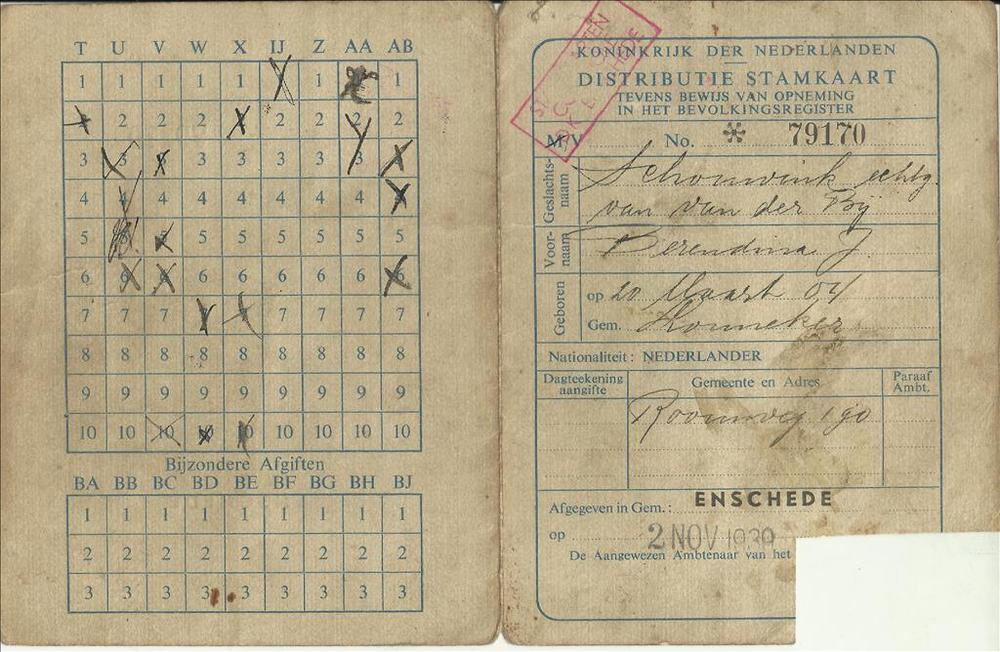 T U V W X IJ Z AA AB
1 1 1 1 1 1
2 2 2 2 2 2
3 3 3 3 3 3 3
4 4 4 4 4 4 4 4
5 5 5 5 5 5 5
6 6 6 6 6 6
7 7 7 7 7 7 7
8 8 8 8 8 8 8 8 8
9 9 9 9 9 9 9 9 9
10 10 10 10 10 10 10 10 10
Bijzondere Afgiften
BA BB BC BD BE BF BG BH BJ
1 1 1 1 1 1 1 1 1
2 2 2 2 2 2 2 2 2
3 3 3 3 3 3 3 3 3
KONINKRIJK DER NEDERLANDEN
DISTRIBUTIE STAMKAART
TEVENS BEWIJS VAN OPNEMING
IN HET BEVOLKINGSREGISTER
M/V No. * 79170
Geslachts-
naam
Schouwink echtg.
van van der Bij
Voor-
naam
Berendina J.
Geboren
op 20 Maart 04
Gem. Lonneker
Nationaliteit: NEDERLANDER
Dagteekening
aangifte
Gemeente en Adres
Paraaf
Ambt.
Roomweg 190
Afgegeven in Gem.: ENSCHEDE
op 2 NOV 1939
De Aangewezen Ambtenaar van het